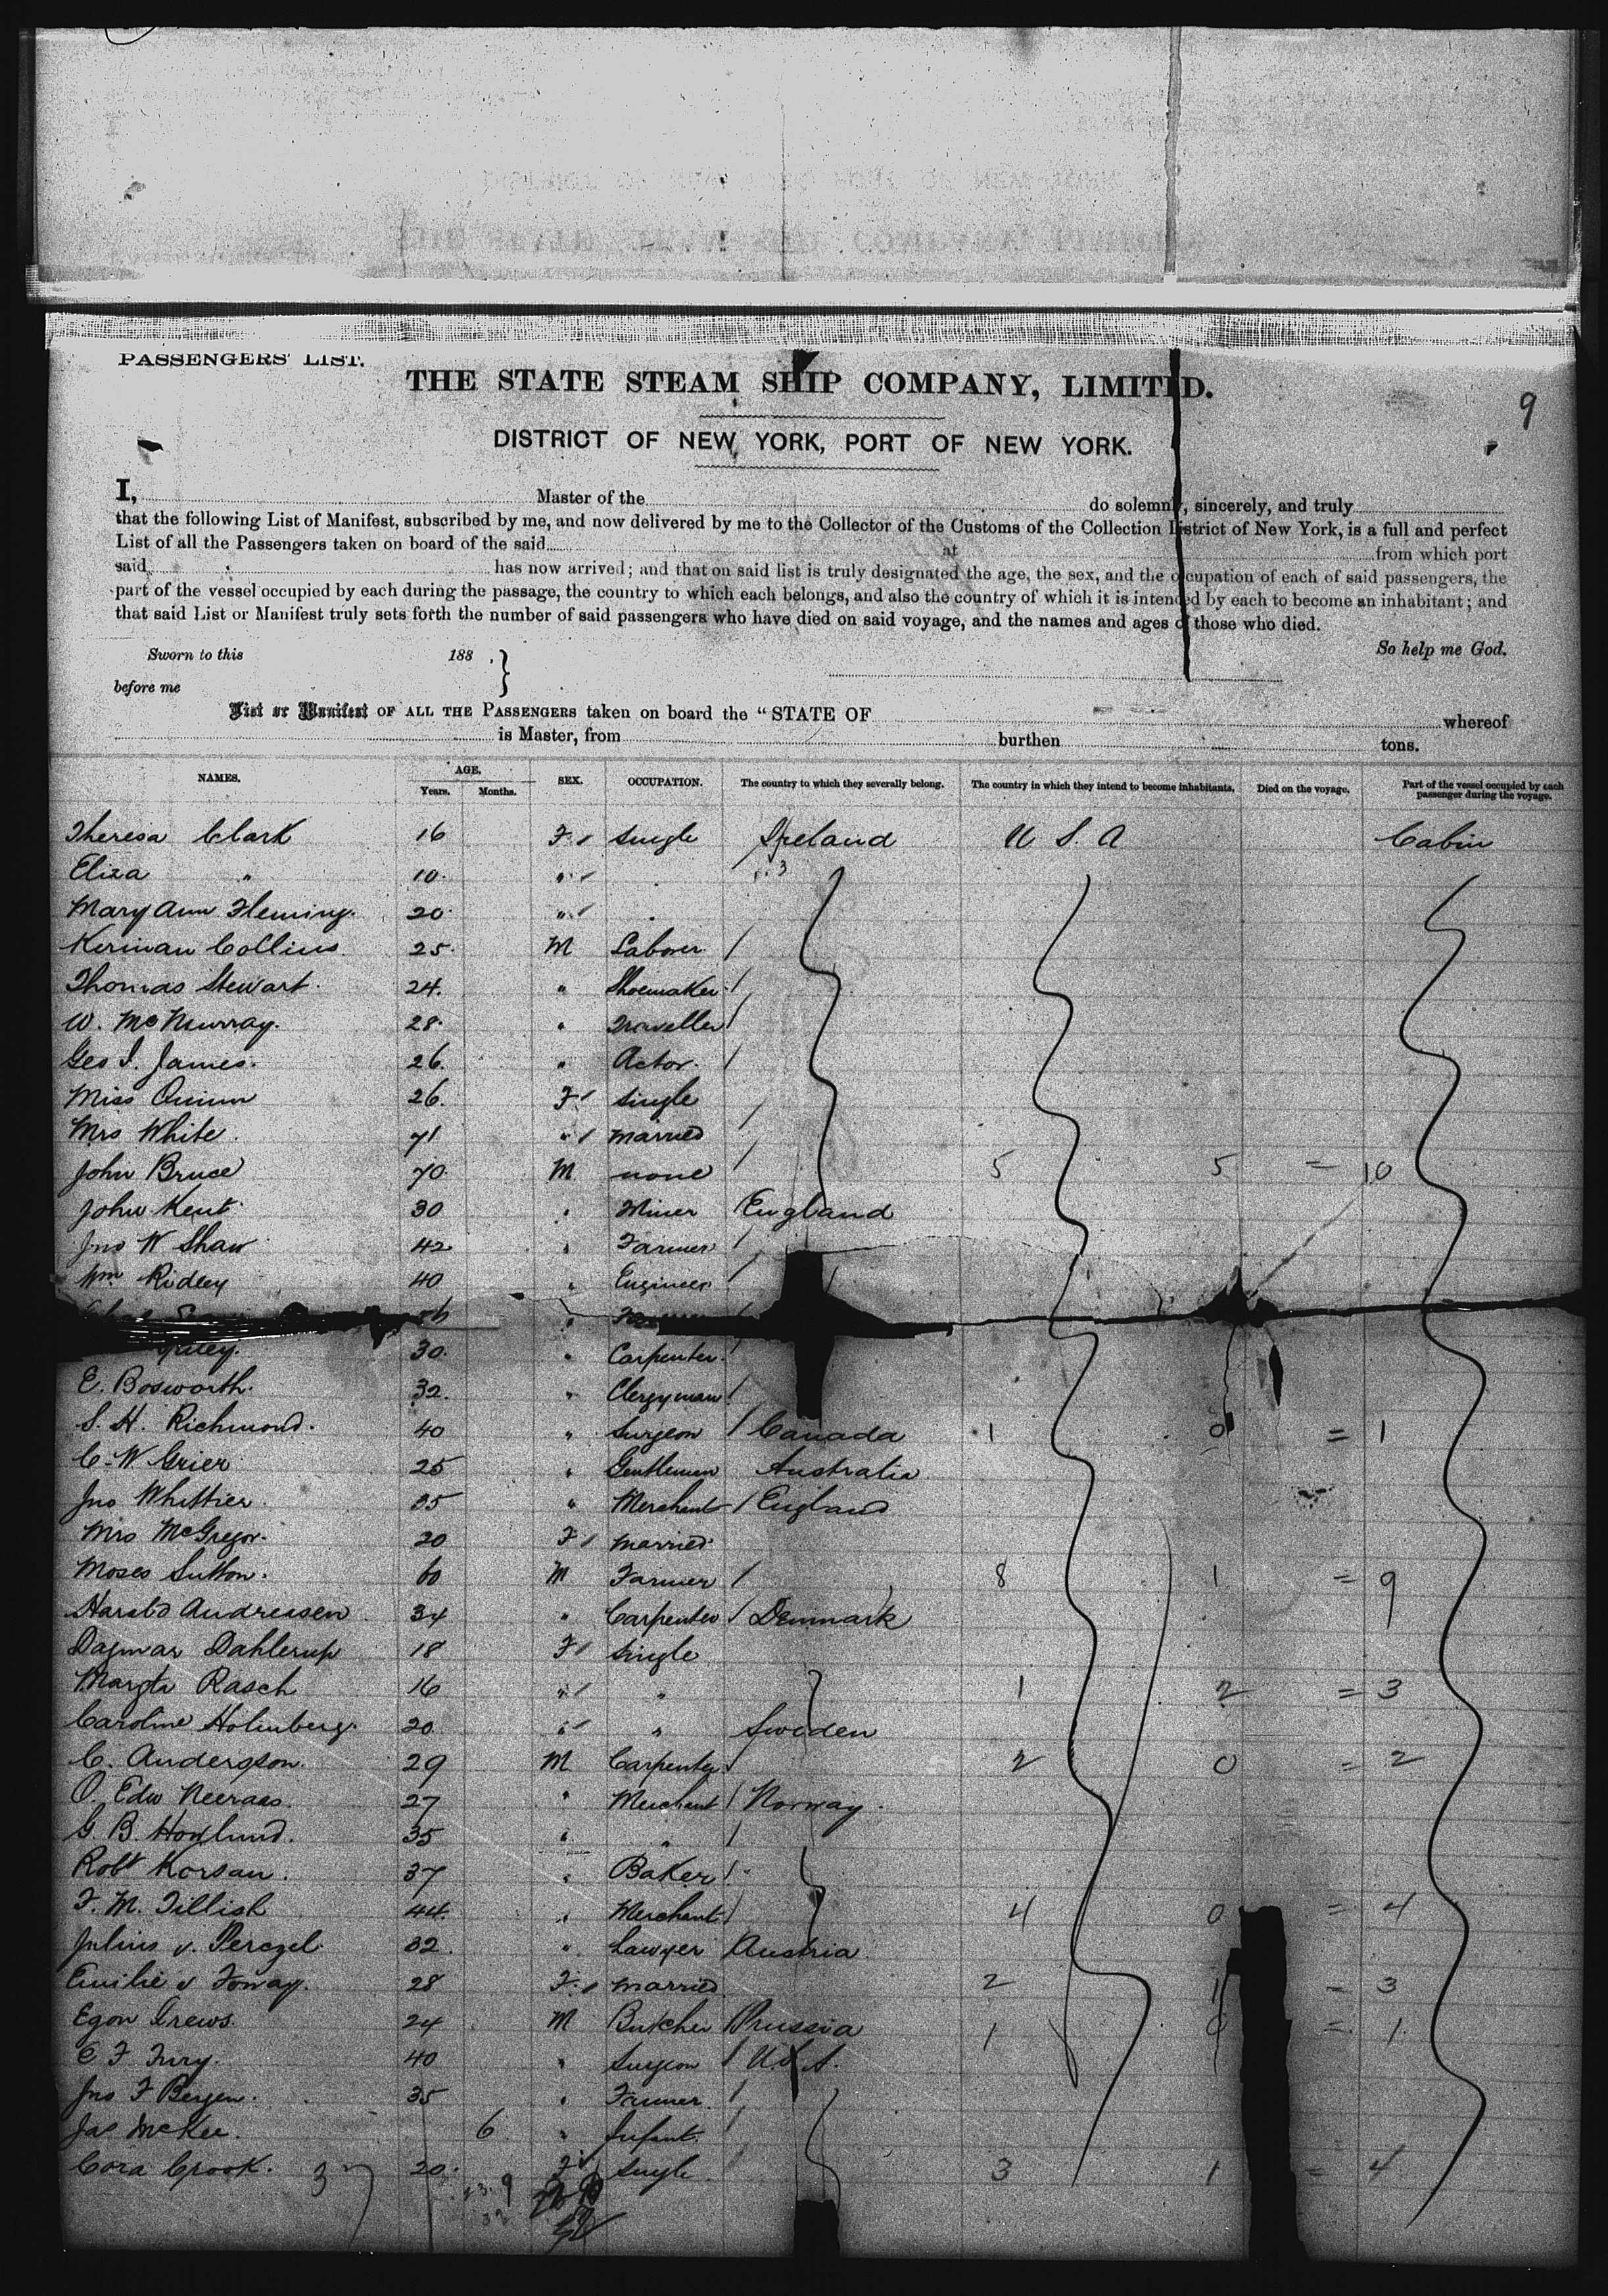 PASSENGERS' LIST.
THE STATE STEAM SHIP COMPANY, LIMITED.
9
DISTRICT OF NEW YORK, PORT OF NEW YORK.
I, Master of the do solemnly, sincerely, and truly
that the following List of Manifest, subscribed by me, and now delivered by me to the Collector of the Customs of the Collection District of New York, is a full and perfect
List of all the Passengers taken on board of the said at from which port
said has now arrived; and that on said list is truly designated the age, the sex, and the occupation of each of said passengers, the
part of the vessel occupied by each during the passage, the country to which each belongs, and also the country of which it is intended by each to become an inhabitant; and
that said List or Manifest truly sets forth the number of said passengers who have died on said voyage, and the names and ages of those who died.
So help me God.
Sworn to this 188 .
before me
List or Manifest OF ALL THE PASSENGERS taken on board the "STATE OF whereof
is Master, from burthen tons.
NAMES. AGE. Years. Months. SEX. OCCUPATION. The country to which they severally belong. The country in which they intend to become inhabitants. Died on the voyage. Part of the vessel occupied by each passenger during the voyage.
Theresa Clark 16 F Single Ireland U S A Cabin
Eliza " 10 "
Mary Ann Fleming 20 "
Kerinan Collins 25 M Laborer
Thomas Stewart 24 " Shoemaker
W. McMurray 28 " Traveller
Geo I. James 26 " Actor
Miss Quinn 26 F Single
Mrs White 71 " Married
John Bruce 70 M none 5 5 = 10
John Kent 30 " Miner England
Jno W Shaw 42 " Farmer
Wm Ridley 40 " Engineer
30 " Carpenter
E. Bosworth 32 " Clergyman
S. H. Richmond 40 " Surgeon Canada 1 0 = 1
C. W Grier 25 " Gentleman Australia
Jno Whittier 35 " Merchant England
Mrs McGregor 20 F Married
Moses Sutton 60 M Farmer 8 1 = 9
Harald Andreasen 34 " Carpenter Denmark
Dagmar Dahlerup 18 F Single
Margta Rasch 16 " " 1 2 = 3
Caroline Holmberg 20 " " Sweden
C. Andersson 29 M Carpenter 2 0 = 2
O. Edw Neeraas 27 " Merchant Norway
G. B. Hoxlund 35 " "
Robt Korsan 37 " Baker
F. M. Tillish 44 " Merchant 4 0 = 4
Julius v. Perczel 32 " Lawyer Austria
Emilie v 28 F Married 2 1 = 3
Egon Grews 24 M Butcher Prussia 1 0 = 1
E F Fury 40 " Surgeon U.S.A.
Jno F Bergen 35 " Farmer
Jas McKee 6 " Infant
Cora Crook 20 F Single 3 1 = 4